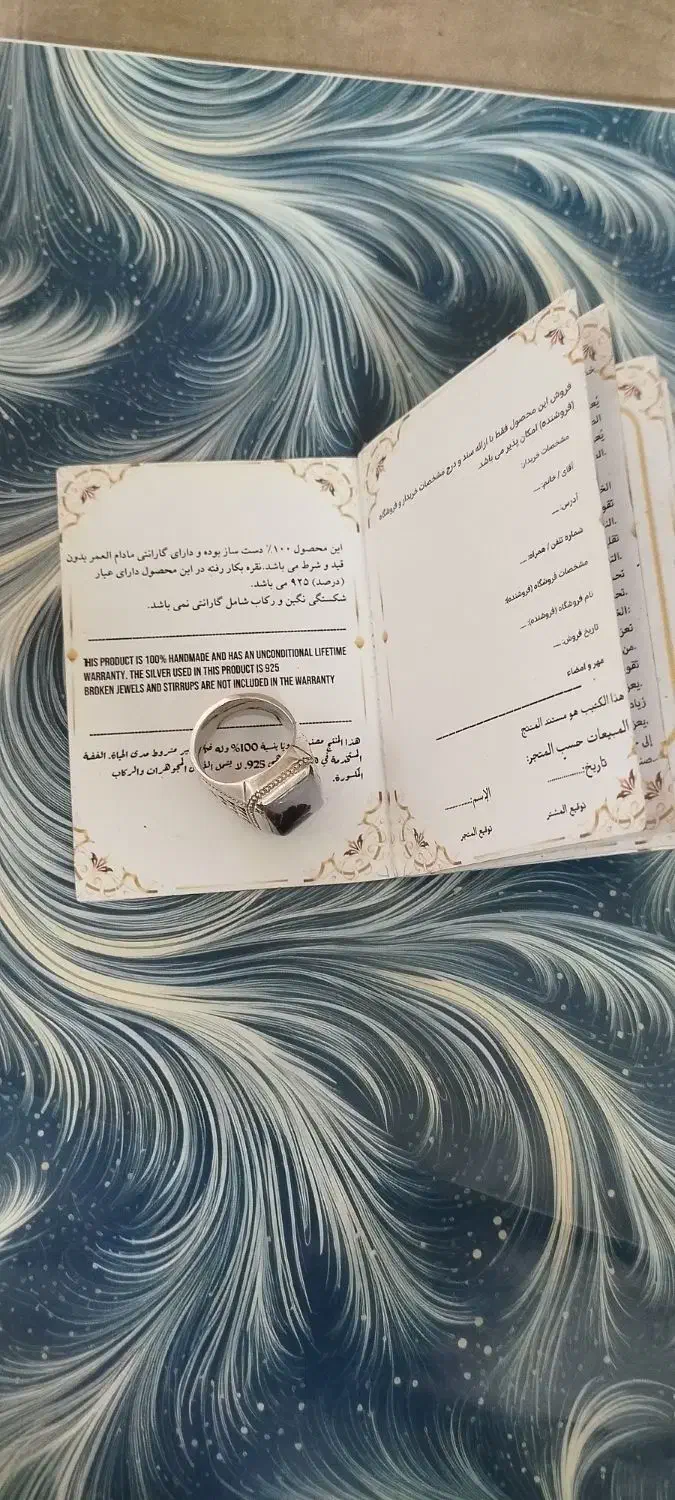 این محصول ۱۰۰٪ دست ساز بوده و دارای گارانتی مادام العمر بدون
قید و شرط می باشد.نقره بکار رفته در این محصول دارای عیار
(درصد) ۹۲۵ می باشد.
شکستگی نگین و رکاب شامل گارانتی نمی باشد.
THIS PRODUCT IS 100% HANDMADE AND HAS AN UNCONDITIONAL LIFETIME
WARRANTY. THE SILVER USED IN THIS PRODUCT IS 925
BROKEN JEWELS AND STIRRUPS ARE NOT INCLUDED IN THE WARRANTY
هذا المنتج بنسبة 100% وله غير مشروط مدى الحياة. الفضة
المستخدمة في 925. لا يشمل المجوهرات والركاب
المكسورة.
فروش این محصول فقط با ارائه سند و درج مشخصات خریدار و فروشگاه
(فروشنده) امکان پذیر می باشد
مشخصات خریدار:
آقای / خانم:...
آدرس:...
شماره تلفن / همراه:...
مشخصات فروشگاه (فروشنده):
نام فروشگاه (فروشنده):...
تاریخ فروش:...
مهر و امضاء
هذا الكتيب هو مستند المنتج
المبيعات حسب المتجر:
تاريخ:............
الإسم:........
توقيع المشتر
توقيع المتجر